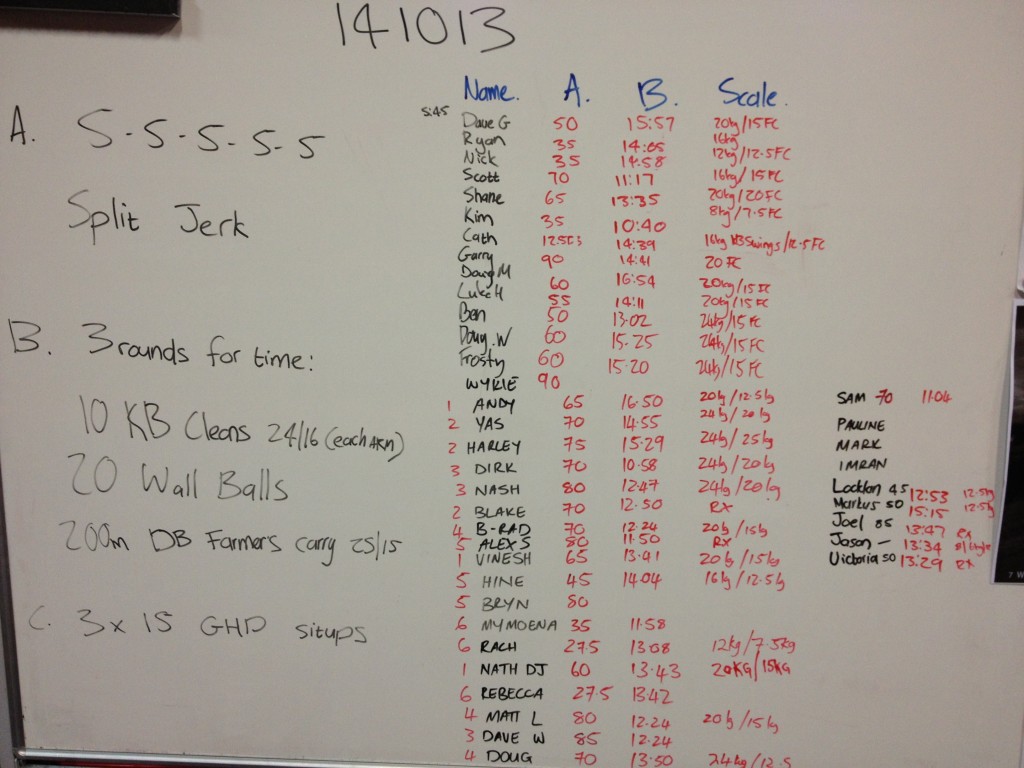 141013
A. 5-5-5-5-5
Split Jerk
B. 3 rounds for time:
10 KB Cleans 24/16 (each ARM)
20 Wall Balls
200m DB Farmers carry 25/15
C. 3x 15 GHD situps
Name. A. B. Scale.
5:45
Dave G 50 15:57 20kg/15FC
Ryan 35 14:05 16kg
Nick 35 14:58 12kg/12.5FC
Scott 70 11:17 16kg/15FC
Shane 65 13:35 20kg/20FC
Kim 35 10:40 8kg/7.5FC
Cath 14:39 16kg KB Swings/12.5FC
Garry 90 14:41 20FC
Doug M 60 16:54 20kg/15FC
Luke H 55 14:11 20kg/15FC
Ben 50 13.02 24kg/15FC
Doug.W 60 15.25 24kg/15FC
Frosty 60 15.20 24kg/15FC
WYKIE 90
1 ANDY 65 16.50 20kg/12.5kg
2 YAS 70 14:55 24kg/20kg
2 HARLEY 75 15:29 24kg/25kg
3 DIRK 70 10.58 24kg/20kg
3 NASH 80 12.47 24kg/20kg
2 BLAKE 70 12.50 RX
4 B-RAD 70 12.24 20kg/15kg
5 ALEX S 80 11.50 RX
1 VINESH 65 13.41 20kg/15kg
5 HINE 45 14.04 16kg/12.5kg
5 BRYN 80
6 MYMOENA 35 11.58
6 RACH 27.5 13.08 12kg/7.5kg
1 NATH DJ 60 13.43 20KG/15KG
6 REBECCA 27.5 13.42
4 MATT L 80 12.24 20kg/15kg
3 DAVE W 85 12.24
4 DOUG 70 13.50 24kg/12.5
SAM 70 11.04
PAULINE
MARK
IMRAN
Lachlan 45 12:53 12.5kg
Markus 50 15:15 12.5kg
Joel 85 13:47 rx
Jason - 13:34
Victoria 50 13:29 rx